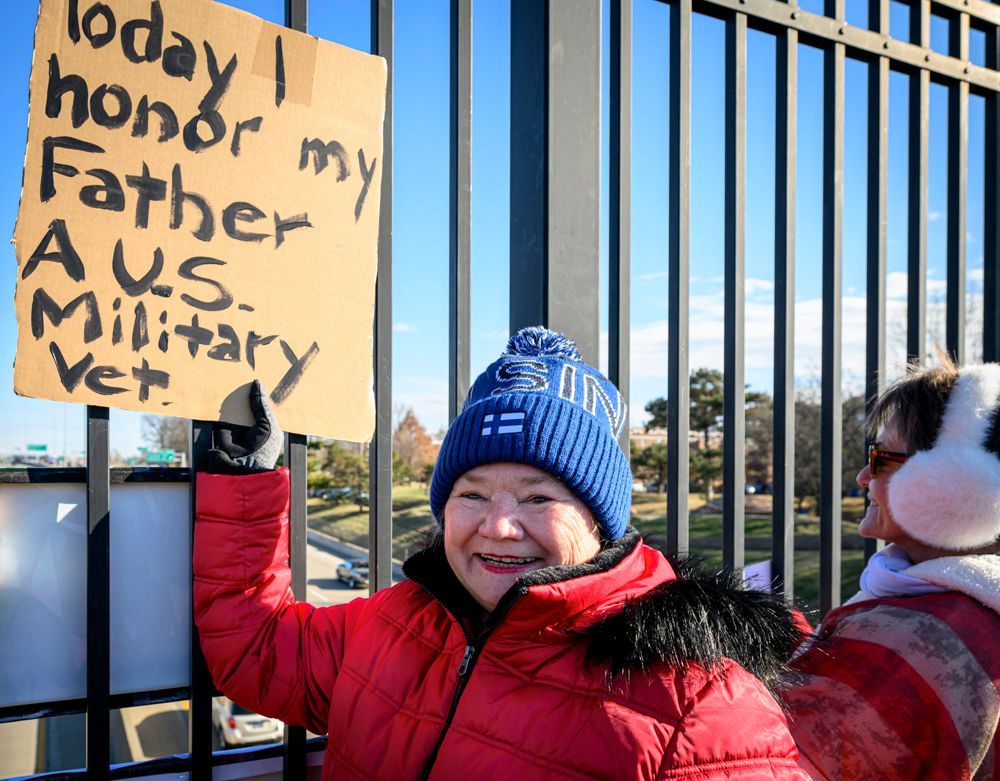 Today I
honor my
Father
A U.S.
Military
Vet.
SIN